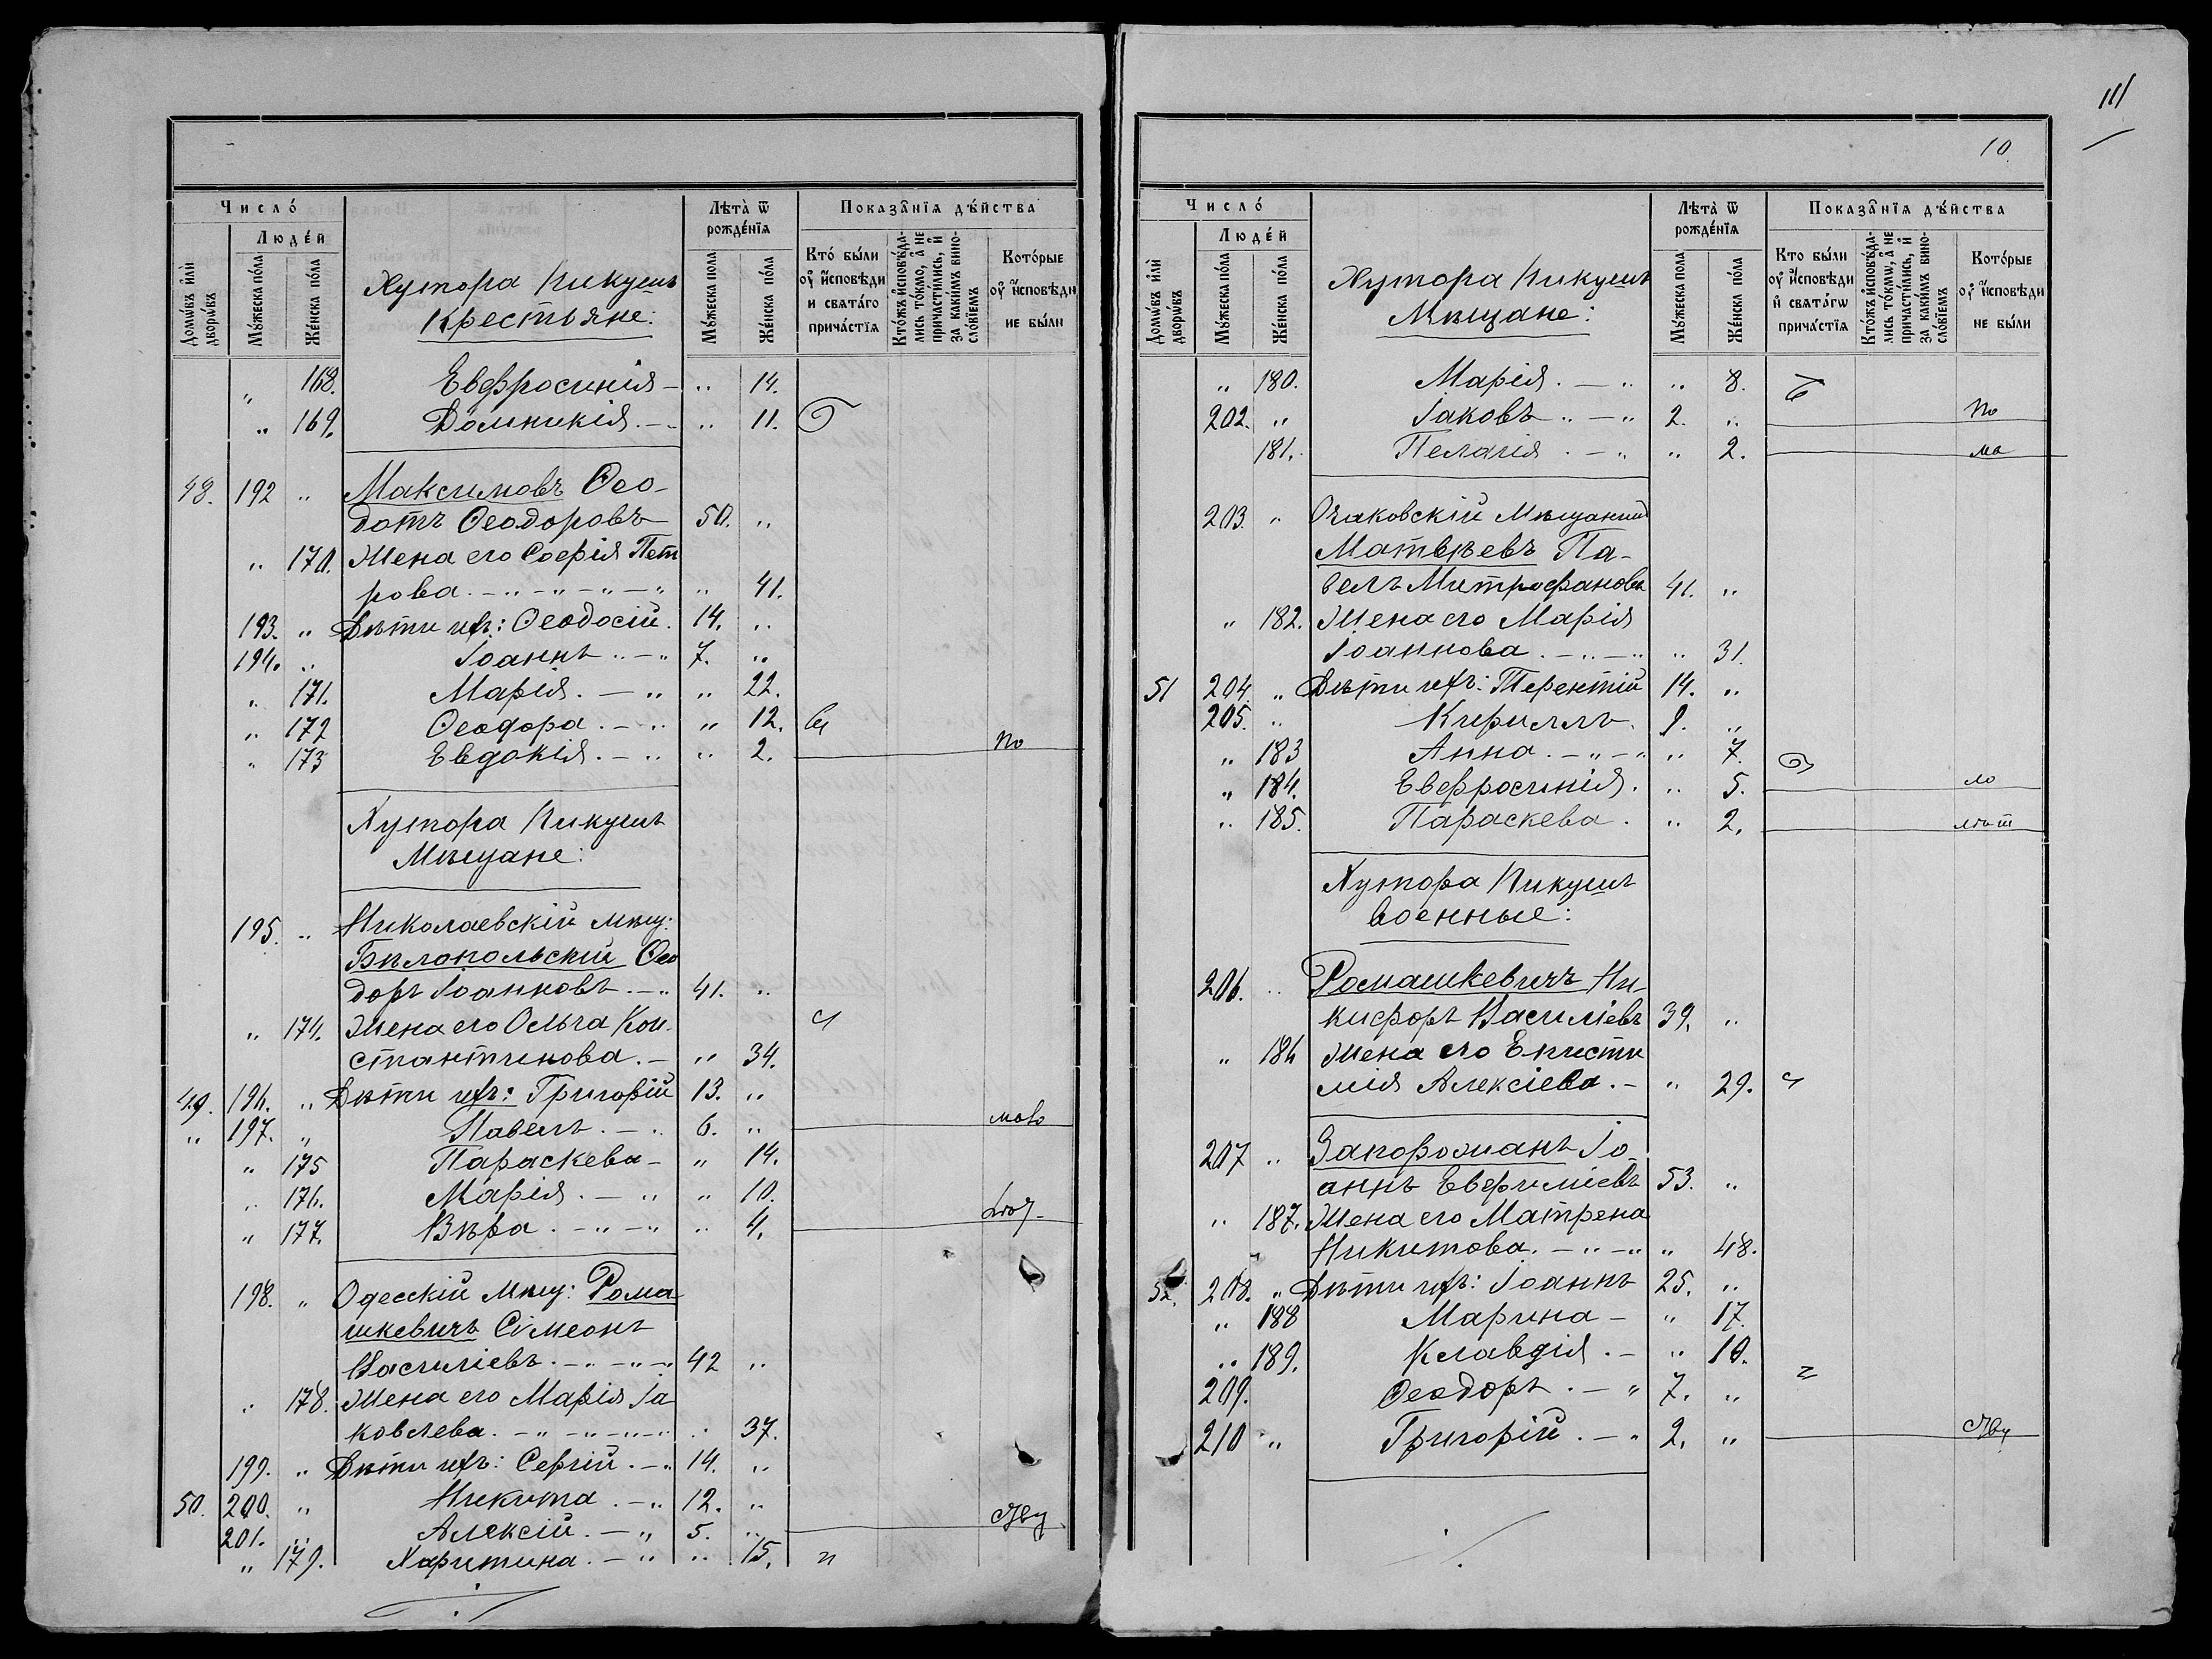 Число́
Люде́й
Домѡ́въ и҆лѝ дворѡ́въ
Мꙋ́жеска по́ла
Же́нска по́ла
Хутора Пикушъ
Крестьяне:
Лѣта̀ ѿ рожде́нїѧ
Мꙋ́жеска пола
Же́нска по́ла
Показа̑нїѧ дѣ́йства
Кто́ бы́ли оу҆ и҆сповѣди и свята́го прича́стїѧ
Кто́жъ и҆сповѣ́дались то́кмо, а҆ не причасти́лись, и҆ за каки́мъ винословіемъ
Кото́рые оу҆ и҆сповѣди не бы́ли
„ 168. Евфросинія — „ 14.
„ 169. Домникія. — „ 11.
48. 192 „ Максимовъ Ѳео-
дотъ Ѳеодоровъ 50. „
„ 170. Жена его Софія Пет
рова. — „ — „ — „ „ 41.
193. „ Дѣти ихъ: Ѳеодосій. 14. „
194. „ Іоаннъ „ — „ 7. „
„ 171. Марія. — „ „ 22.
„ 172 Ѳеодора. — „ „ 12.
„ 173 Евдокія. — „ „ 2. по
Хутора Пикушъ
Мѣщане:
195. „ Николаевскій мѣщ:
Бѣлопольскій Ѳео
доръ Іоанновъ. — „ 41. „
„ 174. Жена его Ольга Кон-
стантинова. — „ 34.
49. 196. „ Дѣти ихъ: Григорій 13. „
„ 197. „ Павелъ. — „ 6. „ мало
„ 175 Параскева — „ 14.
„ 176. Марія. — „ „ 10.
„ 177. Вѣра. — „ — „ „ 4.
198. „ Одесскій мѣщ: Рома
шкевичъ Сѵмеонъ
Василіевъ. — „ — „ — „ 42 „
„ 178. Жена его Марія Іа
ковлева. — „ — „ — „ — „ „ 37.
199. „ Дѣти ихъ: Сергій. — „ 14. „
50. 200. „ Никита. — „ 12. „
201. „ Алексій. — „ 5. „
„ 179. Харитина. — „ „ 15.
111
10
Число́
Люде́й
Домѡ́въ и҆лѝ дворѡ́въ
Мꙋ́жеска по́ла
Же́нска по́ла
Хутора Пикушъ
Мѣщане:
Лѣта̀ ѿ рожде́нїѧ
Мꙋ́жеска пола
Же́нска по́ла
Показа̑нїѧ дѣ́йства
Кто бы́ли оу҆ и҆сповѣди и҆ свята́гѡ прича́стїѧ
Кто́жъ и҆сповѣ́дались то́кмѡ, а҆ не причасти́лись, и҆ за каки́мъ винословіемъ
Кото́рые оу҆ и҆сповѣди не бы́ли
„ 180. Марія. — „ „ 8.
202. „ Іаковъ „ — „ 2. „ по
181. Пелагія. — „ „ 2. ма
203. „ Очаковскій Мѣщанинъ
Матвѣевъ Па-
велъ Митрофановъ 41. „
„ 182. Жена его Марія
Іоаннова. — „ — „ „ 31.
51 204. „ Дѣти ихъ: Терентій 14. „
205. „ Кириллъ. 9. „
„ 183 Анна. — „ — „ „ 7.
„ 184. Евфросинія. „ 5. ло
„ 185. Параскева. „ 2. лѣт
Хутора Пикушъ
военные:
206. „ Ромашкевичъ Ни-
кифоръ Василіевъ 39. „
„ 186 Жена его Еписти
мія Алексіева. — „ 29.
207 „ Запорожанъ Іо-
аннъ Евфиміевъ 53. „
„ 187. Жена его Матрена
Никитова. — „ — „ „ 48.
52. 208. „ Дѣти ихъ: Іоаннъ 25. „
„ 188 Марина — „ 17.
„ 189. Клавдія. — „ 10.
209. Ѳеодоръ. — „ 7. „
210 „ Григорій. — „ 2. „